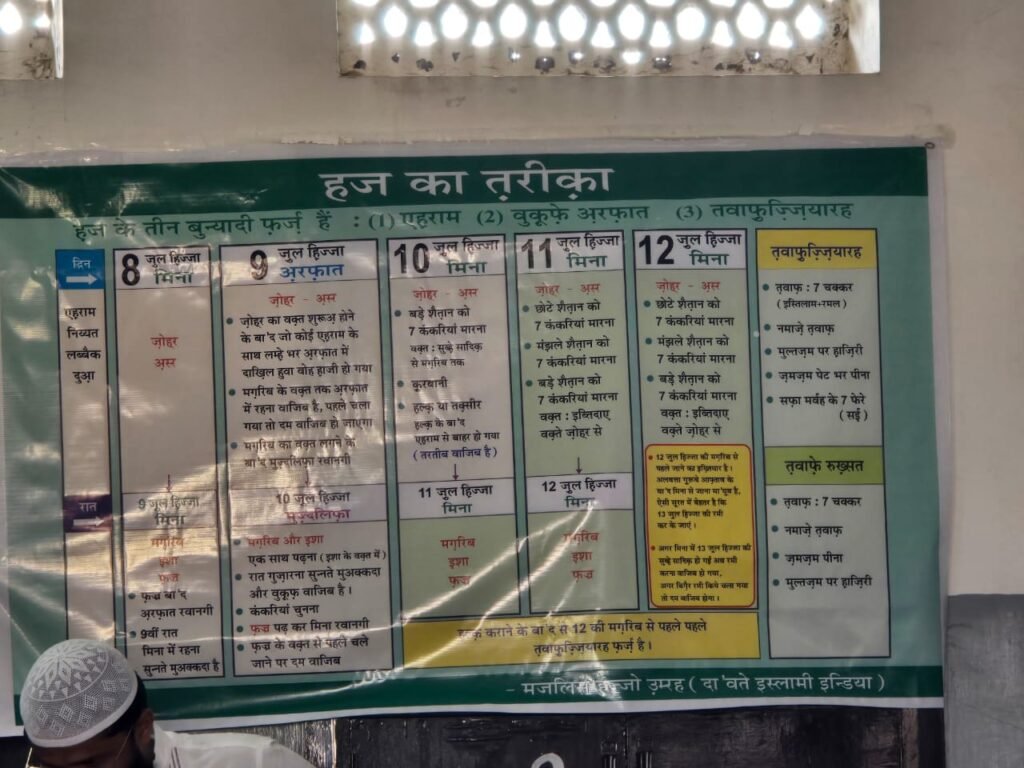 हज का त़रीक़ा
हज के तीन बुन्यादी फ़र्ज़ हैं : (1) एहराम (2) वुक़ूफ़े अ़रफ़ात (3) तवाफ़ुज़्ज़ियारह
दिन
एहराम
निय्यत
लब्बैक
दुआ़
रात
8 जुल हिज्जा
मिना
ज़ोहर
अ़स्र
9 जुल हिज्जा
मिना
मग़रिब
इशा
फ़ज्र
• फ़ज्र बा'द
अ़रफ़ात रवानगी
• 9वीं रात
मिना में रहना
सुन्नते मुअक्कदा है
9 जुल हिज्जा
अ़रफ़ात
ज़ोहर - अ़स्र
• ज़ोहर का वक़्त शुरूअ़ होने
के बा'द जो कोई एहराम के
साथ लम्हे भर अ़रफ़ात में
दाख़िल हुवा वोह हाजी हो गया
• मग़रिब के वक़्त तक अ़रफ़ात
में रहना वाजिब है, पहले चला
गया तो दम वाजिब हो जाएगा
• मग़रिब का वक़्त लगने के
बा'द मुज़्दलिफ़ा रवानगी
10 जुल हिज्जा
मुज़्दलिफ़ा
• मग़रिब और इशा
एक साथ पढ़ना (इशा के वक़्त में)
• रात गुज़ारना सुन्नते मुअक्कदा
और वुक़ूफ़ वाजिब है।
• कंकरियां चुनना
• फ़ज्र पढ़ कर मिना रवानगी
• फ़ज्र के वक़्त से पहले चले
जाने पर दम वाजिब
10 जुल हिज्जा
मिना
ज़ोहर - अ़स्र
• बड़े शैत़ान को
7 कंकरियां मारना
वक़्त : सुब्हे सादिक़
से मग़रिब तक
• क़ुरबानी
• हल्क़ या तक़्सीर
हल्क़ के बा'द
एहराम से बाहर हो गया
(तरतीब वाजिब है)
11 जुल हिज्जा
मिना
मग़रिब
इशा
फ़ज्र
11 जुल हिज्जा
मिना
ज़ोहर - अ़स्र
• छोटे शैत़ान को
7 कंकरियां मारना
• मंझले शैत़ान को
7 कंकरियां मारना
• बड़े शैत़ान को
7 कंकरियां मारना
वक़्त : इब्तिदाए
वक़्ते ज़ोहर से
12 जुल हिज्जा
मिना
मग़रिब
इशा
फ़ज्र
12 जुल हिज्जा
मिना
ज़ोहर - अ़स्र
• छोटे शैत़ान को
7 कंकरियां मारना
• मंझले शैत़ान को
7 कंकरियां मारना
• बड़े शैत़ान को
7 कंकरियां मारना
वक़्त : इब्तिदाए
वक़्ते ज़ोहर से
• 12 जुल हिज्जा की मग़रिब से
पहले जाने का इख़्तियार है।
अलबत्ता ग़ुरूबे आफ़्ताब के
बा'द मिना से जाना मा'यूब है,
ऐसी सूरत में बेहतर है कि
13 जुल हिज्जा की रमी
कर के जाएं।
• अगर मिना में 13 जुल हिज्जा की
सुब्हे सादिक़ हो गई अब रमी
करना वाजिब हो गया,
अगर बिग़ैर रमी किये चला गया
तो दम वाजिब होगा।
हल्क़ कराने के बा'द से 12 की मग़रिब से पहले पहले
त़वाफ़ुज़्ज़ियारह फ़र्ज़ है।
त़वाफ़ुज़्ज़ियारह
• त़वाफ़ : 7 चक्कर
(इस्तिलाम+रमल)
• नमाज़े त़वाफ़
• मुल्तज़म पर हाज़िरी
• ज़मज़म पेट भर पीना
• सफ़ा मर्वह के 7 फेरे
(सई)
त़वाफ़े रुख़्सत
• त़वाफ़ : 7 चक्कर
• नमाज़े त़वाफ़
• ज़मज़म पीना
• मुल्तज़म पर हाज़िरी
- मजलिसे हज्जो उ़मरह ( दा'वते इस्लामी इन्डिया )